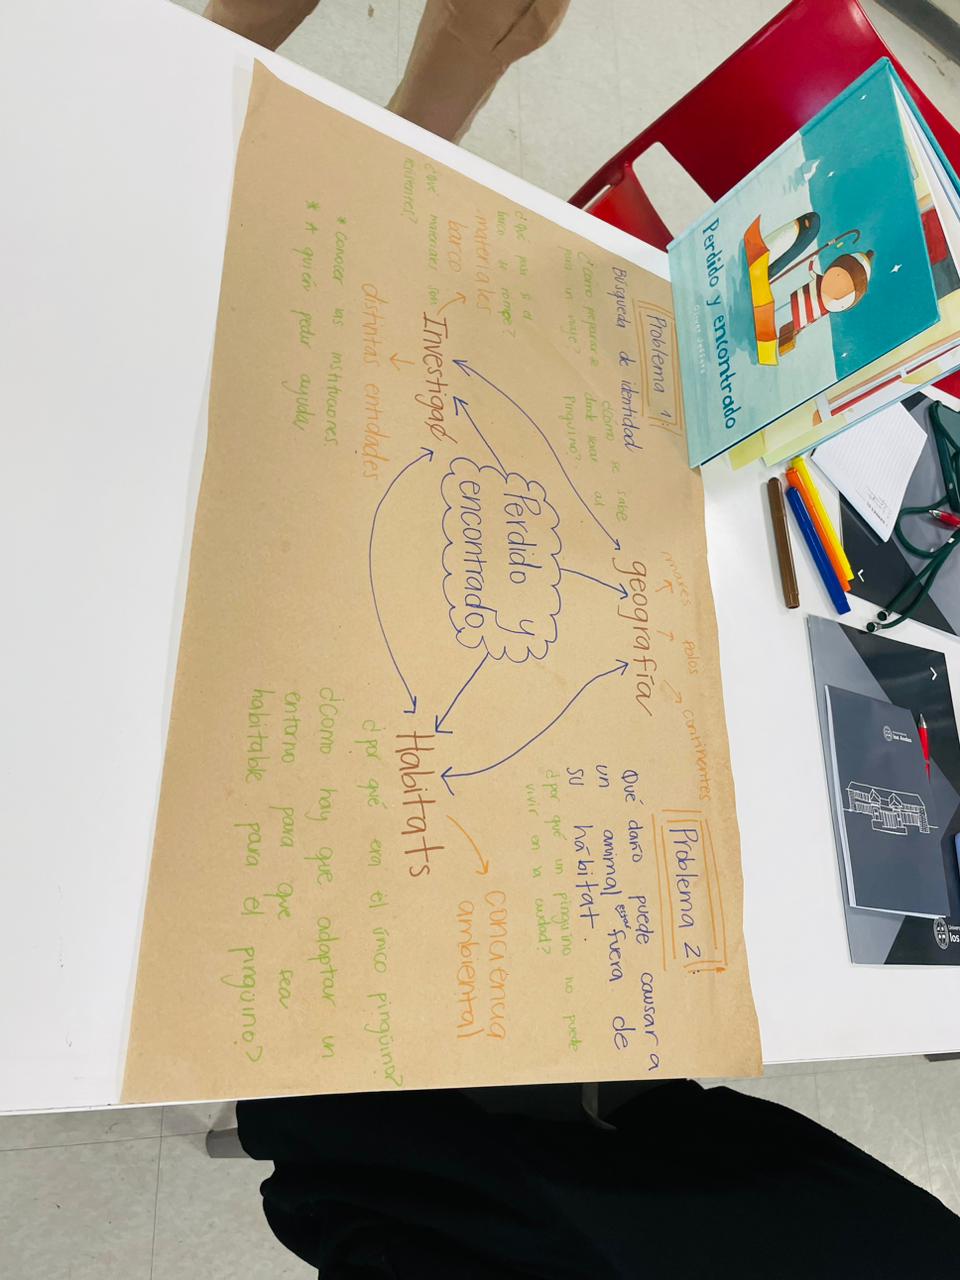 Problema 1:
Búsqueda de identidad
¿cómo prepararse
para un viaje?
¿cómo se sabe
donde llevar al
Pingüino?
¿Qué pasa si el
barco se rompe?
materiales
barco
¿Qué materiales son
resistentes?
Investigad
distintas entidades
* conocer las instituciones
* A quién pedir ayuda
Perdido y
encontrado
geografía
mares
Polos
continentes
Problema 2:
Qué daño puede causar a
un animal estar fuera de
su hábitat.
¿por qué un pingüino no puede
vivir en la ciudad?
Habitats
conciencia
ambiental
¿por qué era el único pingüino?
¿cómo hay que adaptar un
entorno para que sea
habitable para el pingüino?
Perdido y encontrado
Oliver Jeffers
los Andes
Univers
los